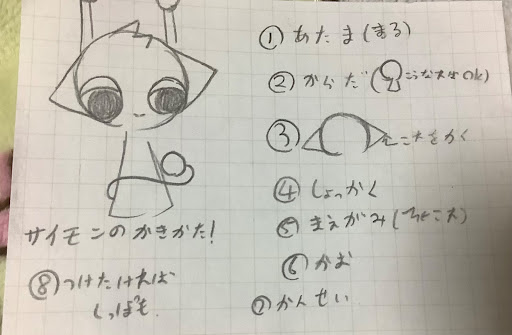 サイモンのかきかた!
① あたま(まる)
② からだ(こうなればOK)
③ ここをかく
④ しょっかく
⑤ まえがみ(でこ)
⑥ かお
⑦ かんせい
⑧ つけたければ
しっぽも